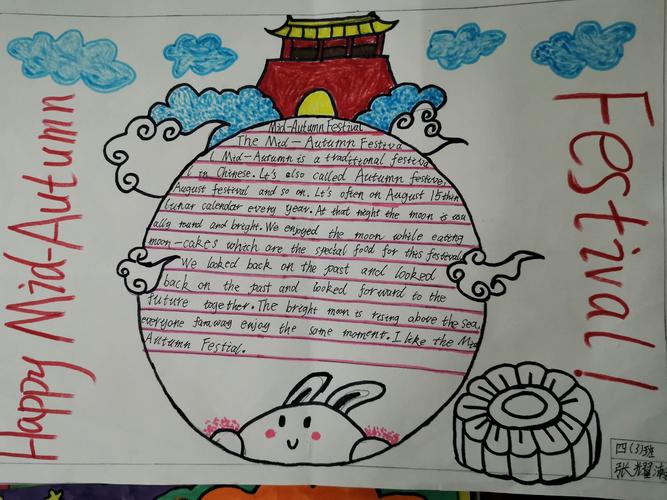 Happy Mid-Autumn
Festival!
Mid-Autumn Festival
The Mid-Autumn Festiva
l Mid-Autumn is a traditional festiva
l in Chinese. It's also called Autumn festive,
August festival and so on. It's often on August 15thin
lunar calendar every year. At that night the moon is usu
ally round and bright. We enjoyed the moon while eating
moon-cakes which are the special food for this festival.
We looked back on the past and looked
back on the past and looked forward to the
future together. The bright moon is rising above the sea,
everyone faraway enjoy the same moment. I like the Mid
Autumn Festial.
四(3)班
张耀